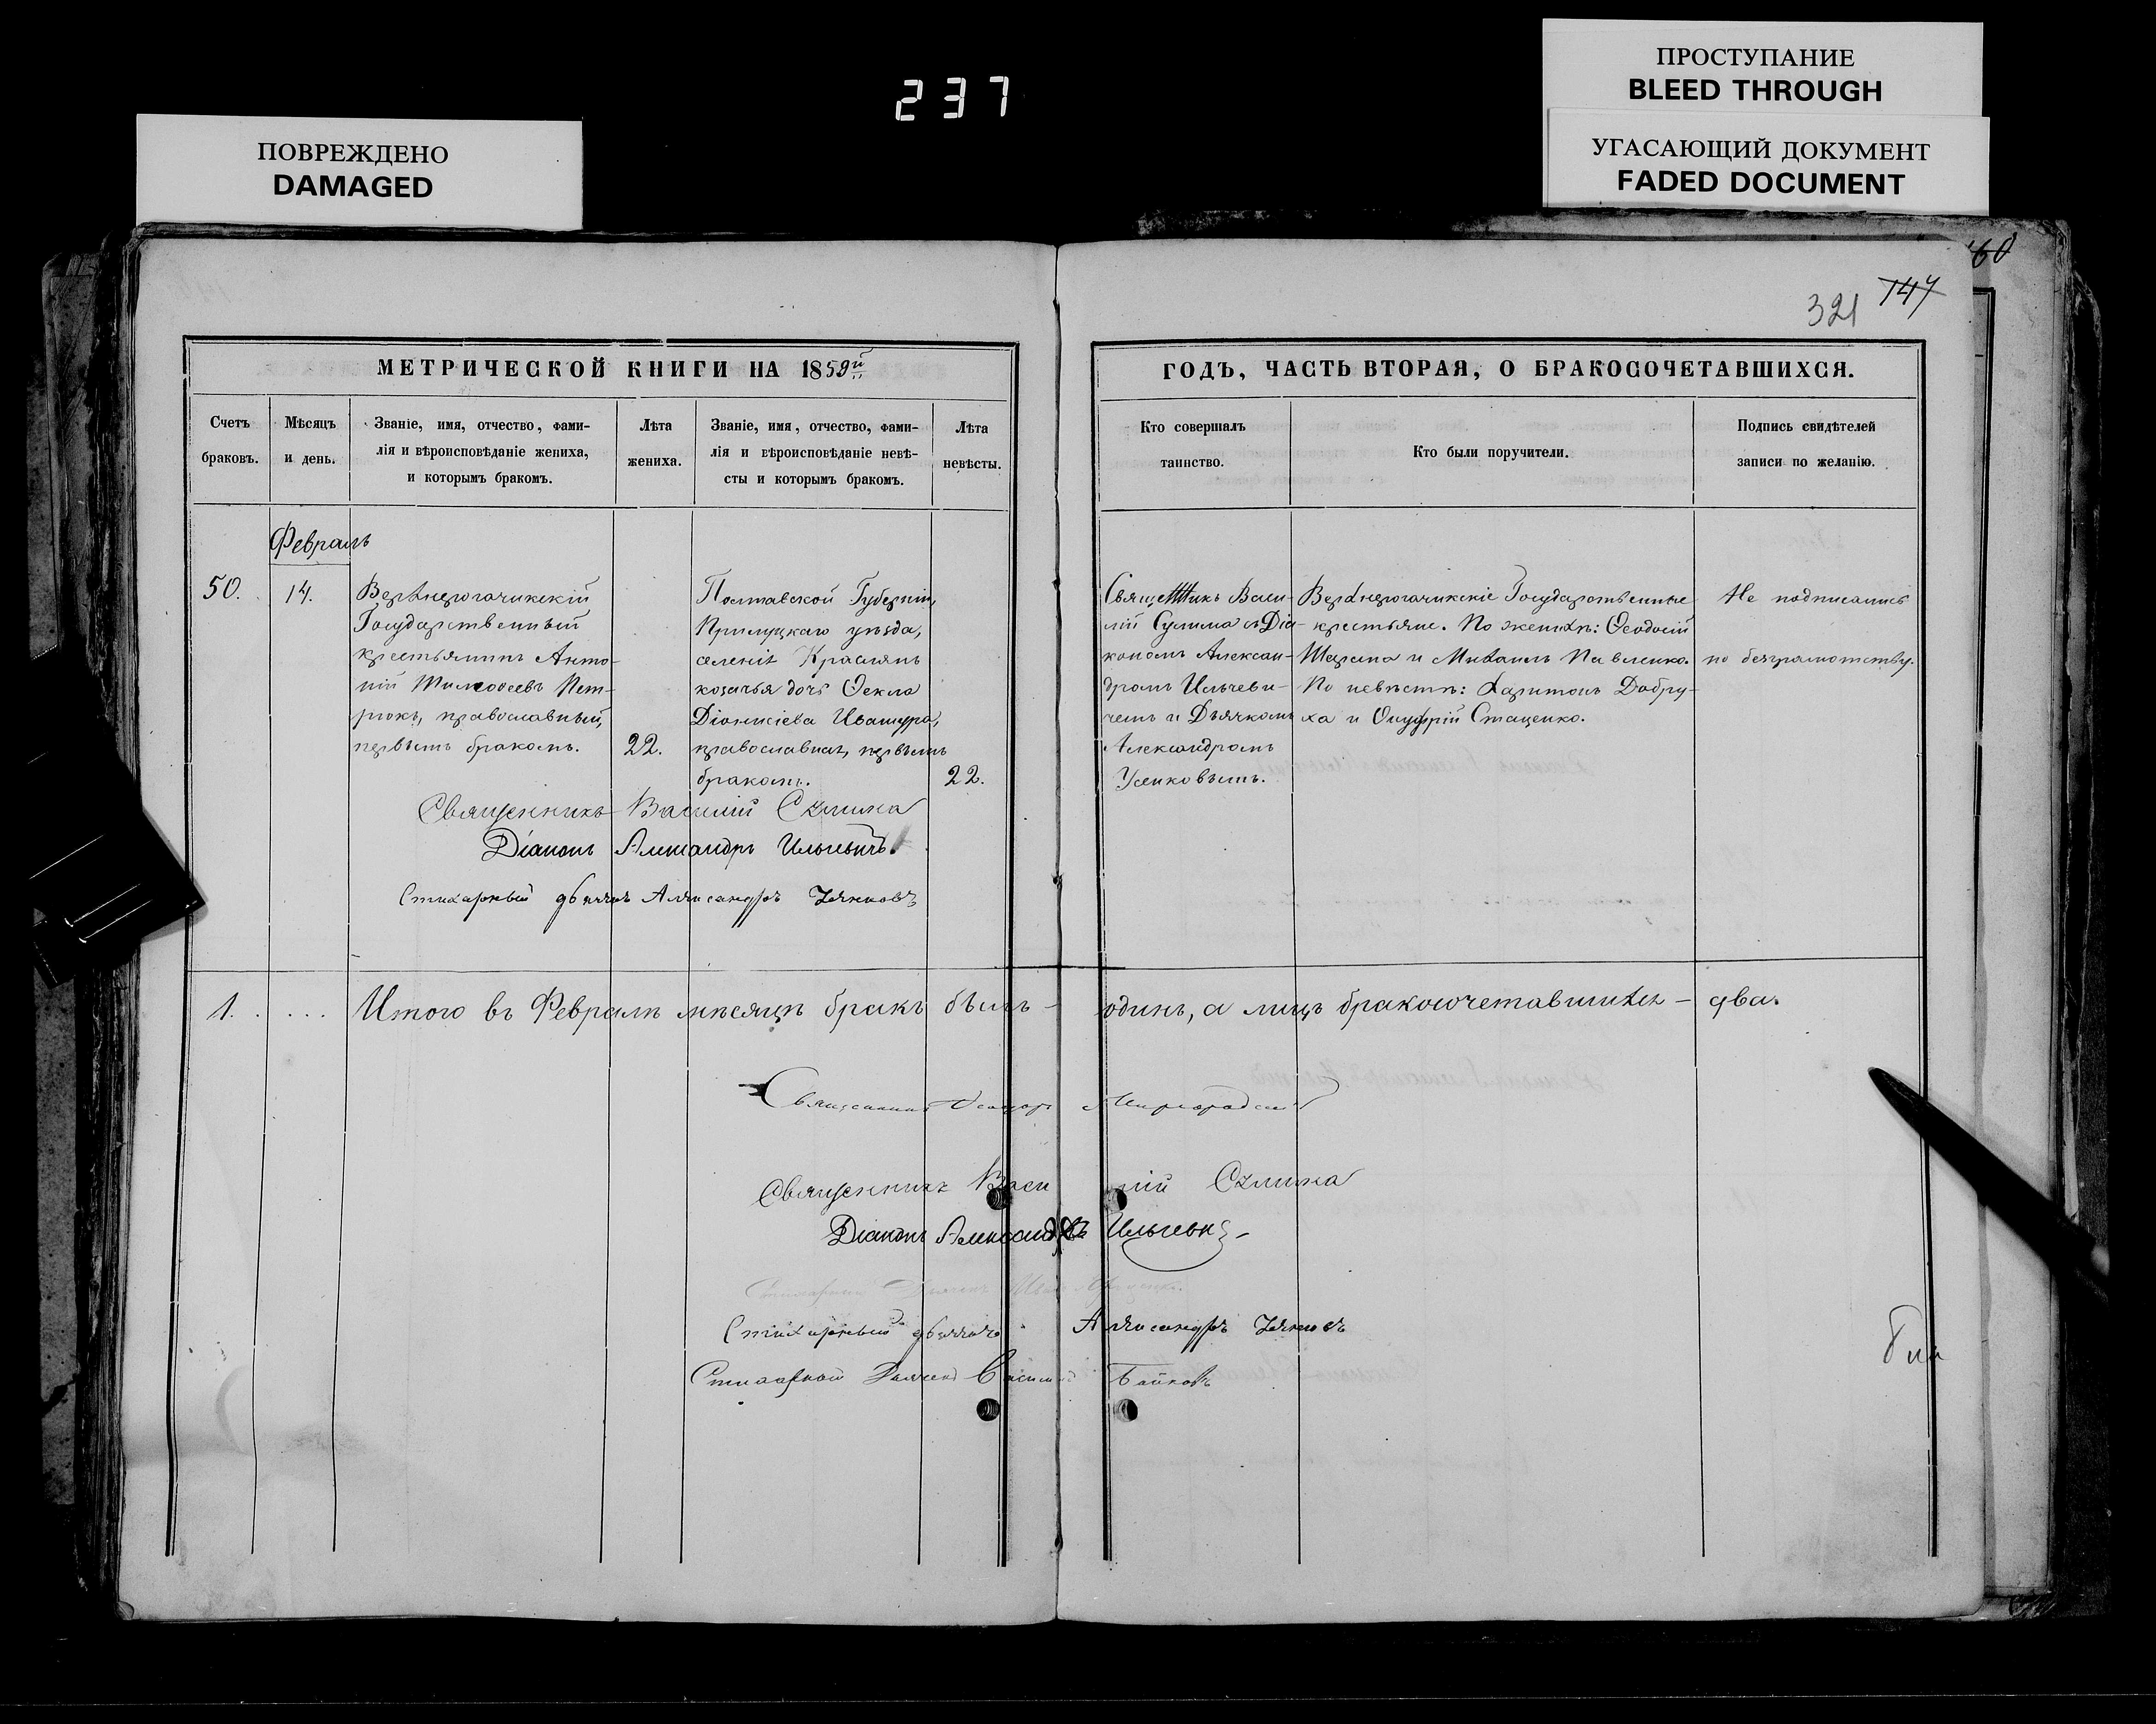 237
ПРОСТУПАНИЕ
BLEED THROUGH
УГАСАЮЩИЙ ДОКУМЕНТ
FADED DOCUMENT
ПОВРЕЖДЕНО
DAMAGED
60
321 147
МЕТРИЧЕСКОЙ КНИГИ НА 1859й
ГОДЪ, ЧАСТЬ ВТОРАЯ, О БРАКОСОЧЕТАВШИХСЯ.
Счетъ
браковъ.
Мѣсяцъ
и день.
Званіе, имя, отчество, фами-
лія и вѣроисповѣданіе жениха,
и которымъ бракомъ.
Лѣта
жениха.
Званіе, имя, отчество, фами-
лія и вѣроисповѣданіе невѣ-
сты и которымъ бракомъ.
Лѣта
невѣсты.
Кто совершалъ
таинство.
Кто были поручители.
Подпись свидѣтелей
записи по желанію.
Февраль
50.
14.
Верхнерогачикскій
Государственный
крестьянинъ Анто-
ній Тимофеевъ Пет-
рюкъ, православный,
первымъ бракомъ.
22.
Полтавской Губерніи,
Прилуцкаго уѣзда,
селенія Краслянъ
козачья дочь Ѳекла
Діонисіева Ивашура,
православная, первымъ
бракомъ.
22.
Священникъ Васи-
лій Сулима съ Діа-
кономъ Алексан-
дромъ Ильчеви-
чемъ и Дьячкомъ
Александромъ
Усенковымъ.
Верхнерогачикскіе Государственные
крестьяне. По женихѣ: Ѳеодосій
Шерана и Михаилъ Павленко.
По невѣстѣ: Харитонъ Добру-
ха и Онуфрій Стаценко.
Не подписались
по безграмотству.
Священникъ Василій Сулима
Діаконъ Александръ Ильчевичъ.
Стихарный дьячокъ Александръ Усенковъ
1. . . . . Итого въ Февралѣ мѣсяцѣ бракъ былъ - одинъ, а лицъ бракосочетавшихся - два.
Священникъ Миргородскій
Священникъ Василій Сулима
Діаконъ Александръ Ильчевич
Стихарный
Стихарный дьячокъ Александръ Усенковъ
Стихарный Дьячокъ Василій Байковъ